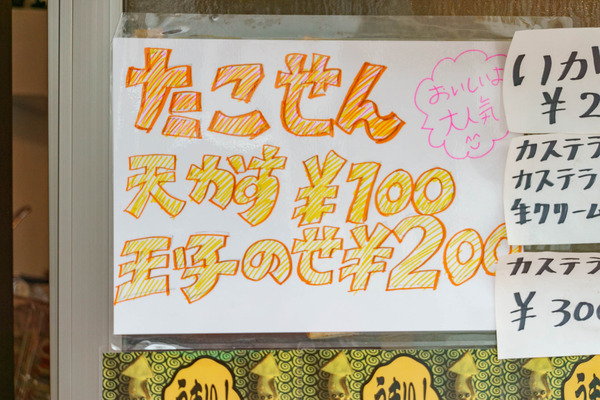 たこせん
おいしいよ
大人気
天かす ¥100
玉子のせ¥200
いか
¥2
カステラ
カステラ
生クリーム
カステラ
¥300
うまい!
うまい!